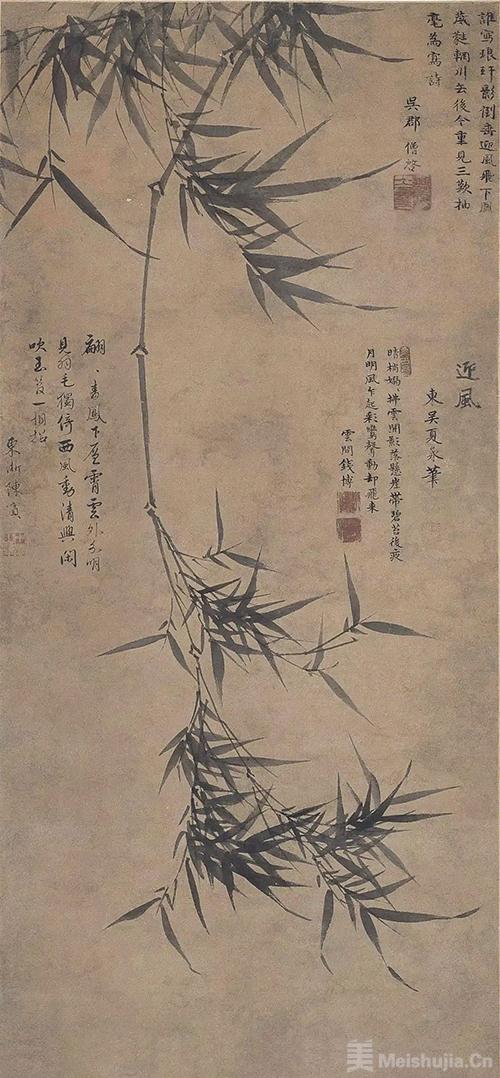 誰寫琅玕影倒垂迎風飛下鳳
葳蕤輞川去後今重見三歎抽
毫為寫詩
吳郡 僧啓
迎風
東吳夏㫤筆
晴梢嫋々拂雲開影落懸崖帶碧苔後夜
月明風乍起彩鸞聲動却飛來
雲間錢博
翩々青鳳下層霄雲外分明
見羽毛獨倚西風動清興閑
吹玉笛一相招
東浙陳
美 Meishujia.Cn